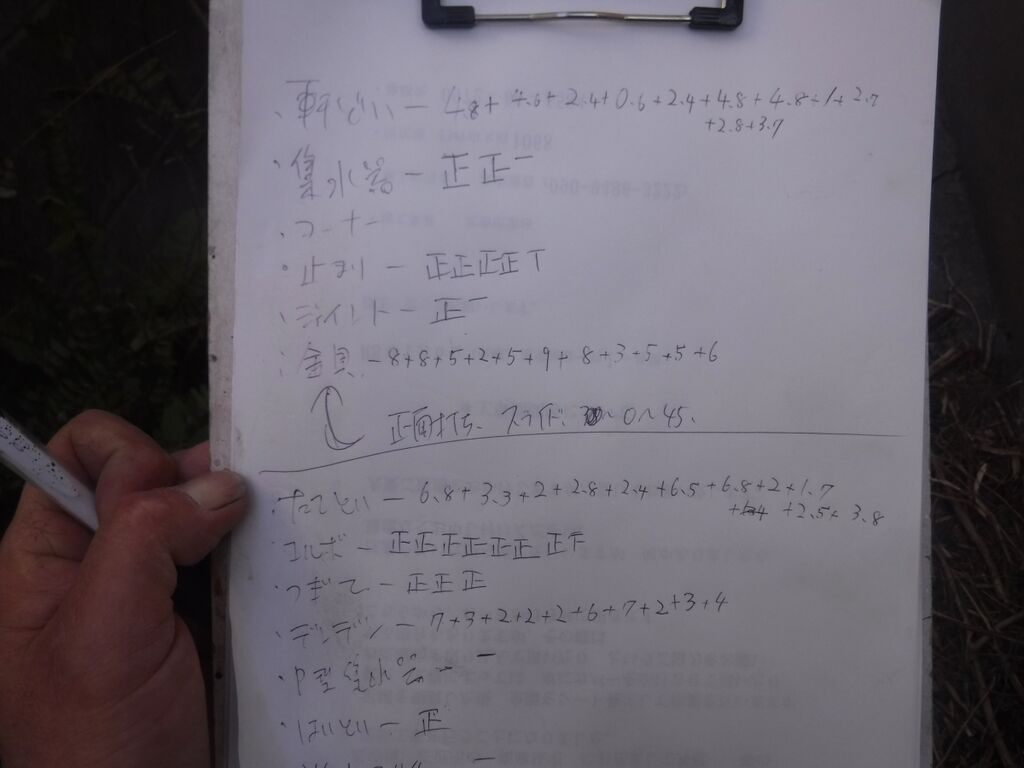 ・軒どい ー 4.8+4.6+2.4+0.6+2.4+4.8+4.8+1+2.7
+2.8+3.7
・集水器 ー 正正一
・コーナー
・止まり ー 正正正正T
・ジョイント ー 正一
・金具 ー 8+8+5+2+5+9+8+3+5+5+6
正面打ち、スライド、0~45、
・たてどい ー 6.8+3.3+2+2.8+2.4+6.5+6.8+2+1.7
+2.5+3.8
・エルボ ー 正正正正正正正下
・つぎて ー 正正正
・デンデン ー 7+3+2+2+2+6+7+2+3+4
・P型集水器 ー 一
・はいどい ー 正